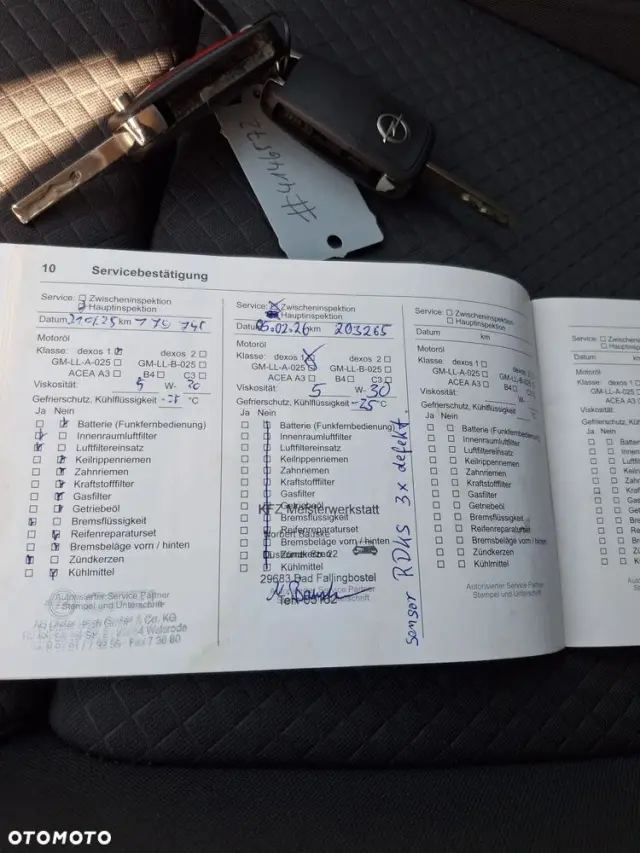 #4446572
10 Servicebestätigung
Service: Zwischeninspektion
Hauptinspektion
Datum km 179 741
Motoröl
Klasse: dexos 1 dexos 2
GM-LL-A-025 GM-LL-B-025
ACEA A3 B4 C3
Viskosität: 5 W- 30
Gefrierschutz, Kühlflüssigkeit -25 °C
Ja Nein
Batterie (Funkfernbedienung)
Innenraumluftfilter
Luftfiltereinsatz
Keilrippenriemen
Zahnriemen
Kraftstofffilter
Gasfilter
Getriebeöl
Bremsflüssigkeit
Reifenreparaturset
Bremsbeläge vorn / hinten
Zündkerzen
Kühlmittel
Autorisierter Service Partner
Stempel und Unterschrift
& Co. KG
Walsrode
Service: Zwischeninspektion
Hauptinspektion
Datum 06.02.26 km 203265
Motoröl
Klasse: dexos 1 dexos 2
GM-LL-A-025 GM-LL-B-025
ACEA A3 B4 C3
Viskosität: 5 W- 30
Gefrierschutz, Kühlflüssigkeit -25 °C
Ja Nein
Batterie (Funkfernbedienung)
Innenraumluftfilter
Luftfiltereinsatz
Keilrippenriemen
Zahnriemen
Kraftstofffilter
Gasfilter
Getriebeöl
KFZ Meisterwerkstatt
Bremsflüssigkeit
Reifenreparaturset
Norbert Bauske
Bremsbeläge vorn / hinten
Zündkerzen
22
Kühlmittel
29683 Bad Fallingbostel
Tel. 05162
sensor RDKS 3x defekt.
Service: Zwischeninspektion
Hauptinspektion
Datum km
Motoröl
Klasse: dexos 1 dexos 2
GM-LL-A-025 GM-LL-B-025
ACEA A3 B4 C3
Viskosität: W-
Gefrierschutz, Kühlflüssigkeit °C
Ja Nein
Batterie (Funkfernbedienung)
Innenraumluftfilter
Luftfiltereinsatz
Keilrippenriemen
Zahnriemen
Kraftstofffilter
Gasfilter
Getriebeöl
Bremsflüssigkeit
Reifenreparaturset
Bremsbeläge vorn / hinten
Zündkerzen
Kühlmittel
Autorisierter Service Partner
Stempel und Unterschrift
Service:
Datum
Motoröl
Klasse: dexos 1
GM-LL-A-025
ACEA A3
Viskosität:
Ja Nein
OTOMOTO